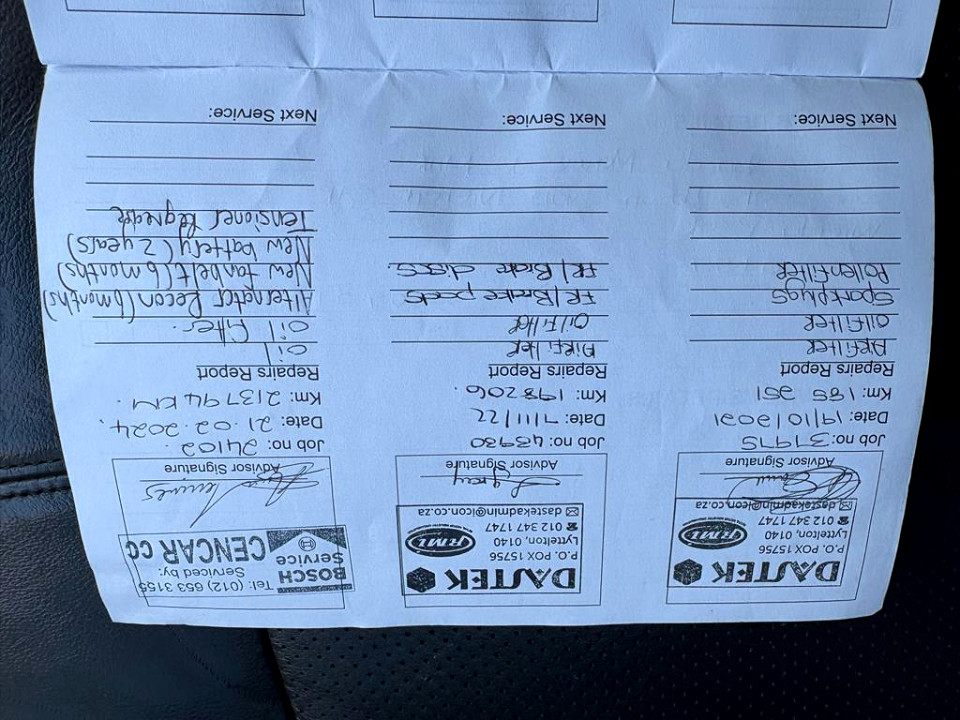 DASTEK
P.O. POX 15756
Lyttelton, 0140
012 347 1747
dastekadmin@icon.co.za
RMI
Advisor Signature
Job no: 31975
Date: 19/10/2021
Km: 185 251
Repairs Report
Airfilter
Oilfilter
Sparkplugs
Pollenfilter
Next Service:
DASTEK
P.O. POX 15756
Lyttelton, 0140
012 347 1747
dastekadmin@icon.co.za
RMI
Advisor Signature
Job no: 43930
Date: 7/11/22
Km: 198206.
Repairs Report
Airfilter
Oilfilter
FR/Brake pads
FR/Brake discs.
Next Service:
BOSCH
Service
Tel: (012) 653 3155
Serviced by:
CENCAR CC
Advisor Signature
Job no: 24102
Date: 21.02.2024.
Km: 213794 KM.
Repairs Report
oil
oil filter.
Alternator Recon (6 months)
New fanbelt (6 months)
New battery (2 years)
Tensioner Regrease
Next Service: